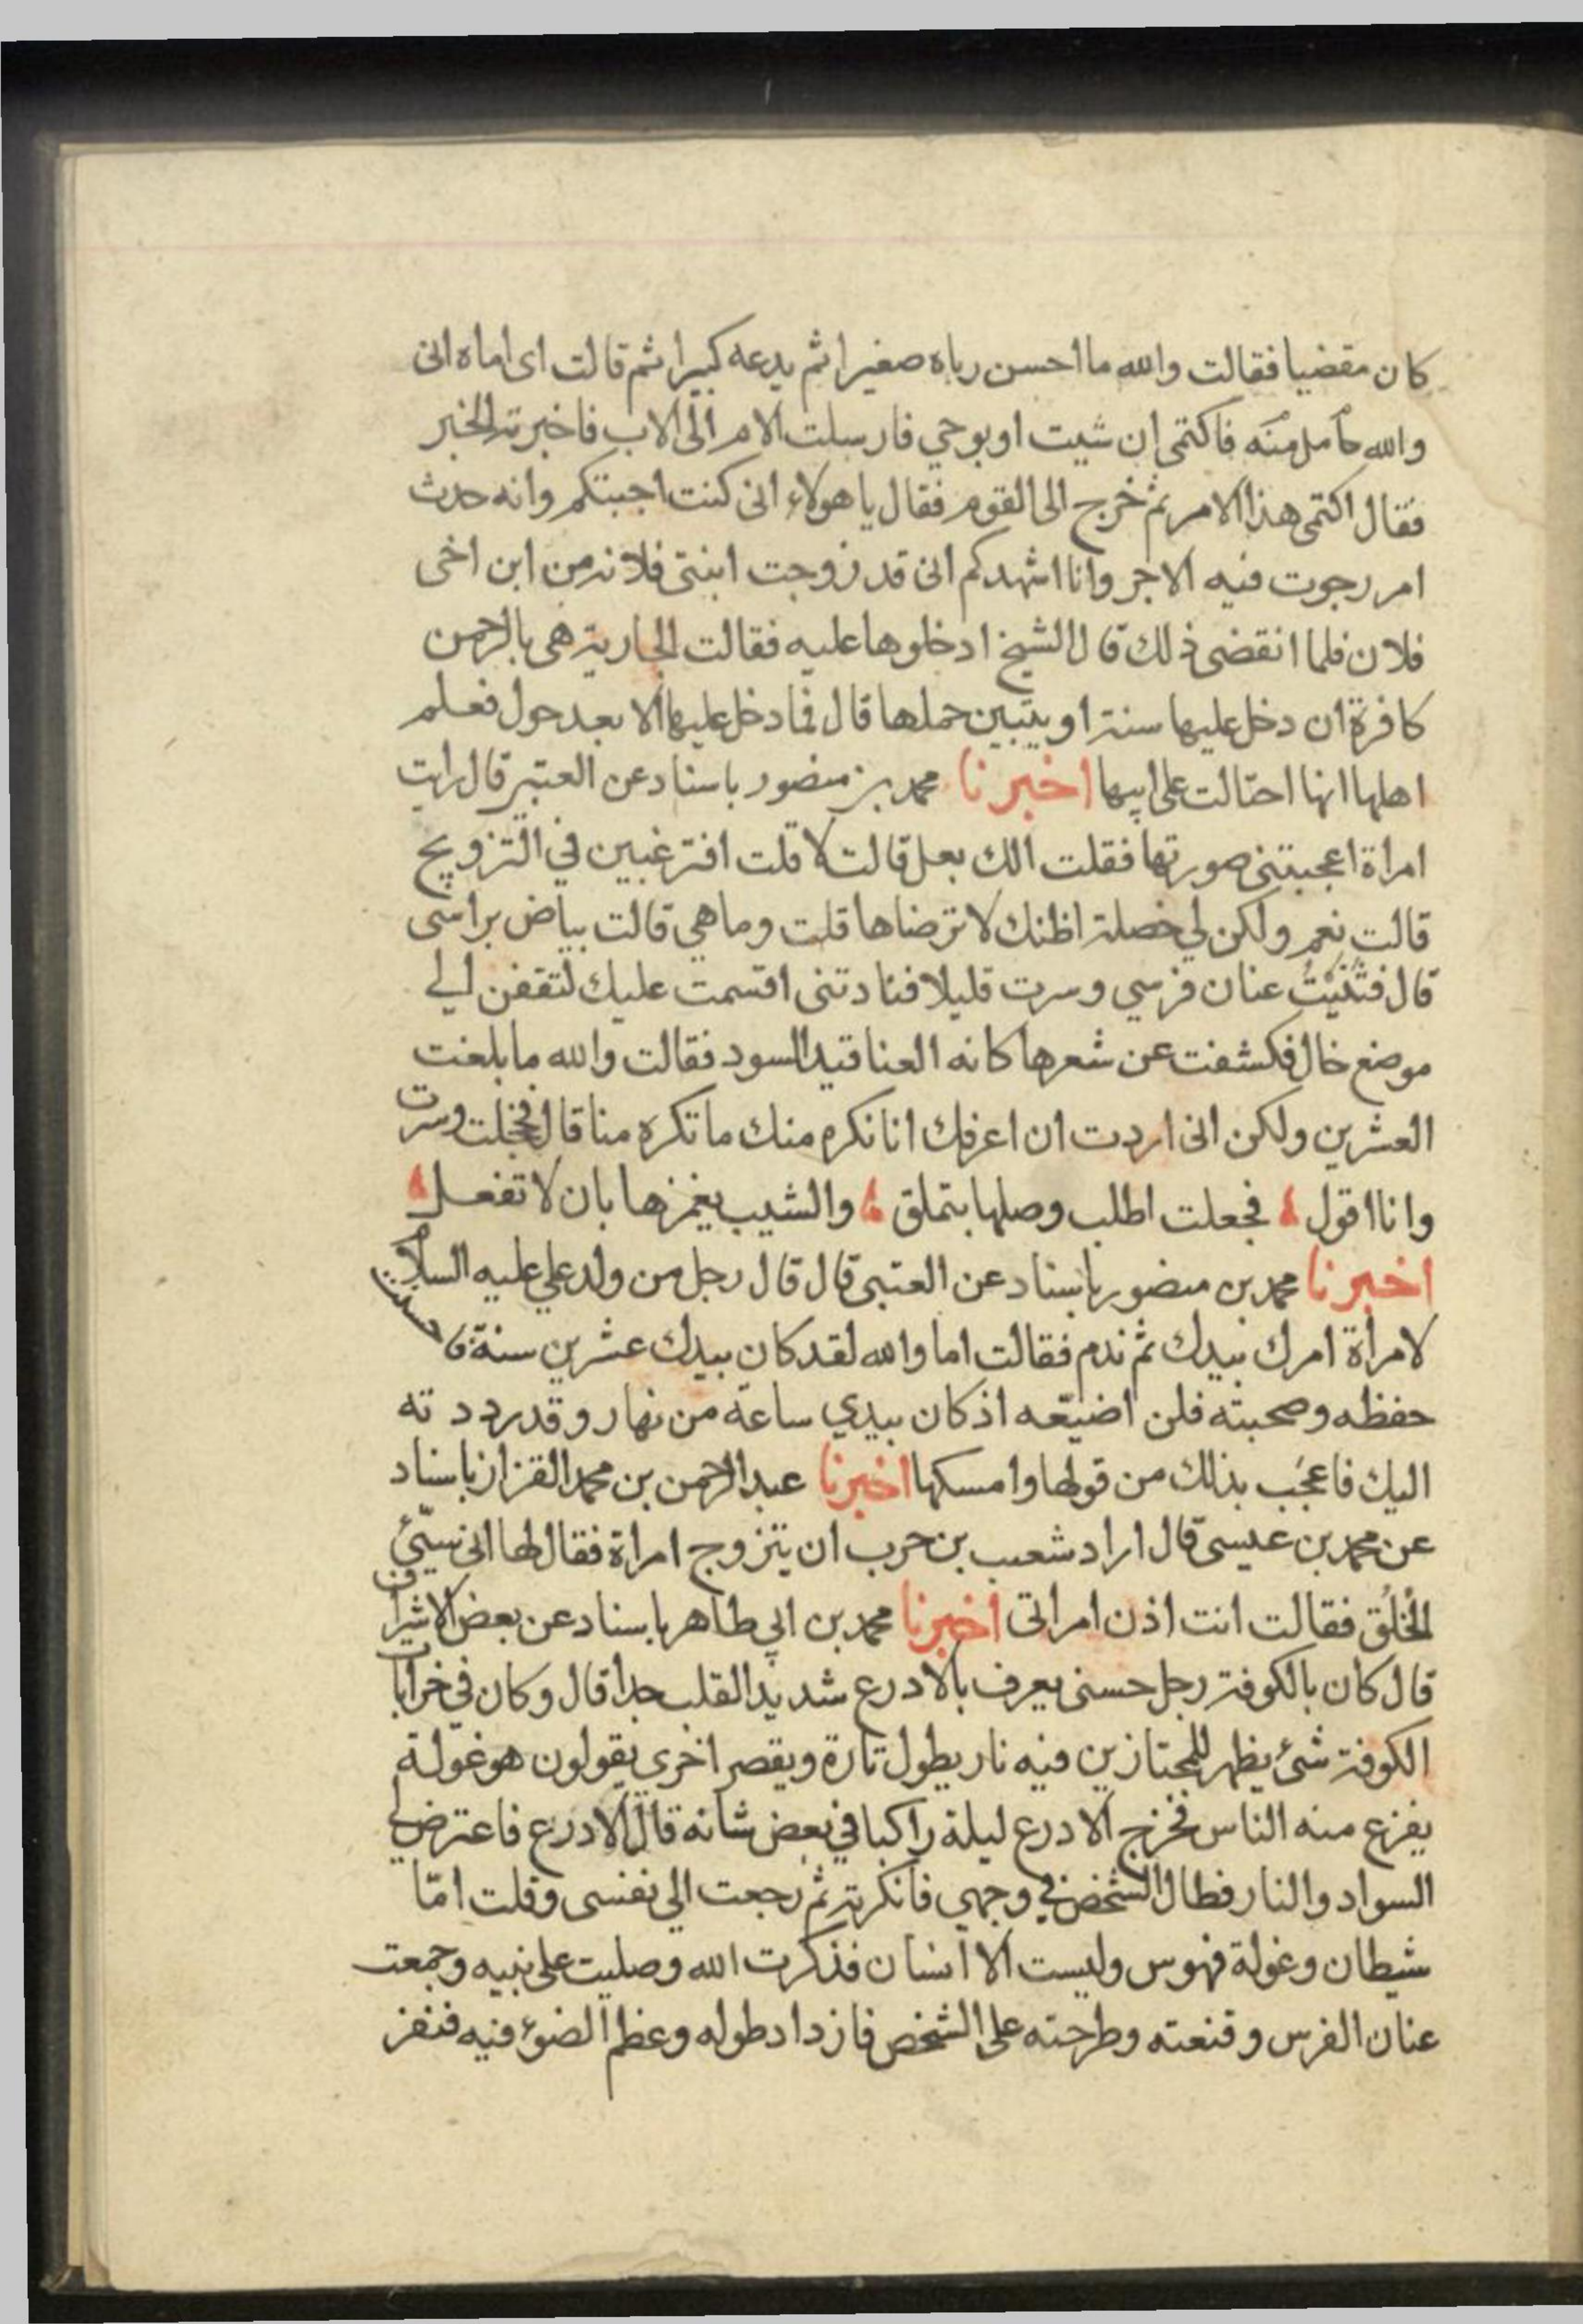 كان مقضيا فقالت والله ما احسن رباه صغيرا ثم يدعه كبيرا ثم قالت اى اماه انى
والله حامل منه فاكتمى ان شيت او بوحي فارسلت الام الى الاب فاخبرته الخبر
فقال اكتمى هذا الامر ثم خرج الى القوم فقال يا هولاء انى كنت اجبتكم وانه حدث
امر رجوت فيه الاجر وانا اشهدكم انى قد زوجت ابنتى فلانه من ابن اخى
فلان فلما انقضى ذلك قال الشيخ ادخلوها عليه فقالت الجارية هى بالرحمن
كافرة ان دخل عليها سنة او يتبين حملها قال فما دخل عليها الا بعد حول فعلم
اهلها انها احتالت على ابيها اخبرنا محمد بن منصور باسناد عن العتبى قال رايت
امراة اعجبتنى صورتها فقلت الك بعل قالت لا قلت افترغبين في التزويج
قالت نعم ولكن لي خصلة اظنك لا ترضاها قلت وما هي قالت بياض براسى
قال فثنيت عنان فرسي وسرت قليلا فنادتنى اقسمت عليك لتقفن الي
موضع خال فكشفت عن شعرها كانه العناقيد السود فقالت والله ما بلغت
العشرين ولكن انى اردت ان اعرفك انا نكره منك ما تكره منا قال فخجلت وسرت
وانا اقول فجعلت اطلب وصلها بتملق والشيب يغمزها بان لا تفعل
اخبرنا محمد بن منصور باسناد عن العتبى قال قال رجل من ولد علي عليه السلام
لامراة امرك بيدك ثم ندم فقالت اما والله لقد كان بيدك عشرين سنة فاحسنت
حفظه وصحبته فلن اضيعه اذ كان بيدي ساعة من نهار وقد رددته
اليك فاعجب بذلك من قولها وامسكها اخبرنا عبد الرحمن بن محمد القزاز باسناد
عن محمد بن عيسى قال اراد شعيب بن حرب ان يتزوج امراة فقال لها انى سيئ
الخلق فقالت انت اذن امراتى اخبرنا محمد بن ابي طاهر باسناد عن بعض الاشراف
قال كان بالكوفة رجل حسنى يعرف بالادرع شديد القلب جدا قال وكان في خرابات
الكوفة شئ يظهر للمجتازين فيه نار يطول تارة ويقصر اخرى يقولون هو غولة
يفزع منه الناس فخرج الادرع ليلة راكبا في بعض شانه قال الادرع فاعترض لي
السواد والنار فطال الشخص في وجهي فانكرته ثم رجعت الي نفسى وقلت امّا
شيطان وغولة فهوس وليست الا انسان فذكرت الله وصليت على نبيه وجمعت
عنان الفرس وقنعته وطرحته على الشخص فازداد طوله وعظم الضوء فيه فنفر